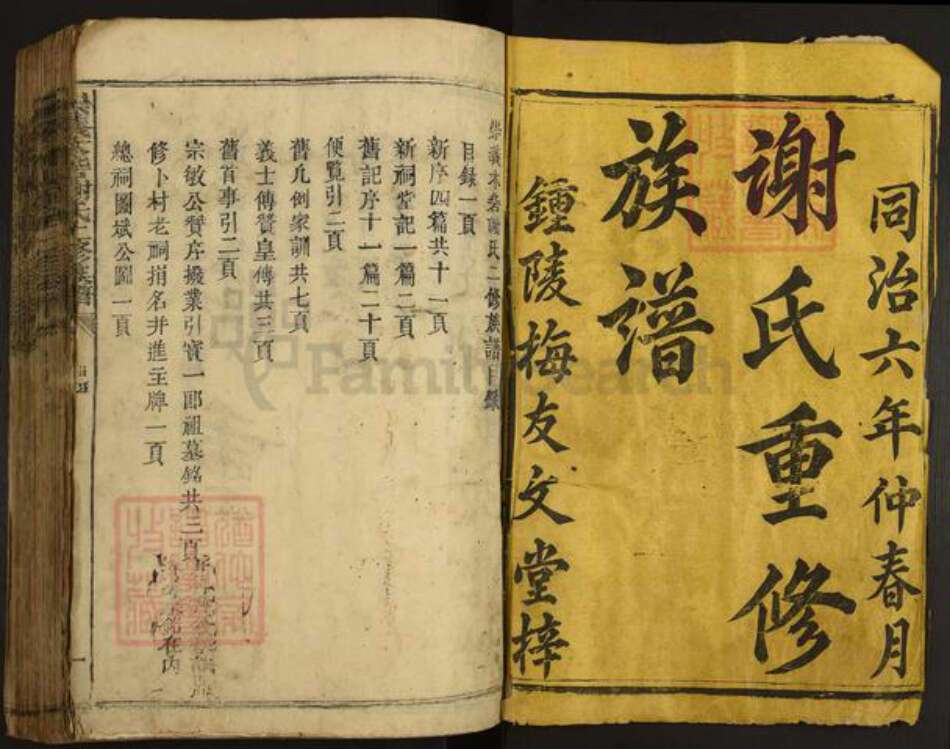 同治六年仲春月
謝氏重修
族譜
鍾陵梅友文堂梓
崇義木巷謝氏二修族譜目錄
目錄一頁
新序四篇共十一頁
新祠堂記一篇二頁
舊記序十一篇二十頁
便覽引二頁
舊凡例家訓共七頁
義士傳贊皇傳共三頁
舊首事引二頁
宗敏公贊序撥業引實一郎祖墓銘共三頁
修卜村老祠捐名并進主牌一頁
總祠圖斌公圖一頁
FamilySearch